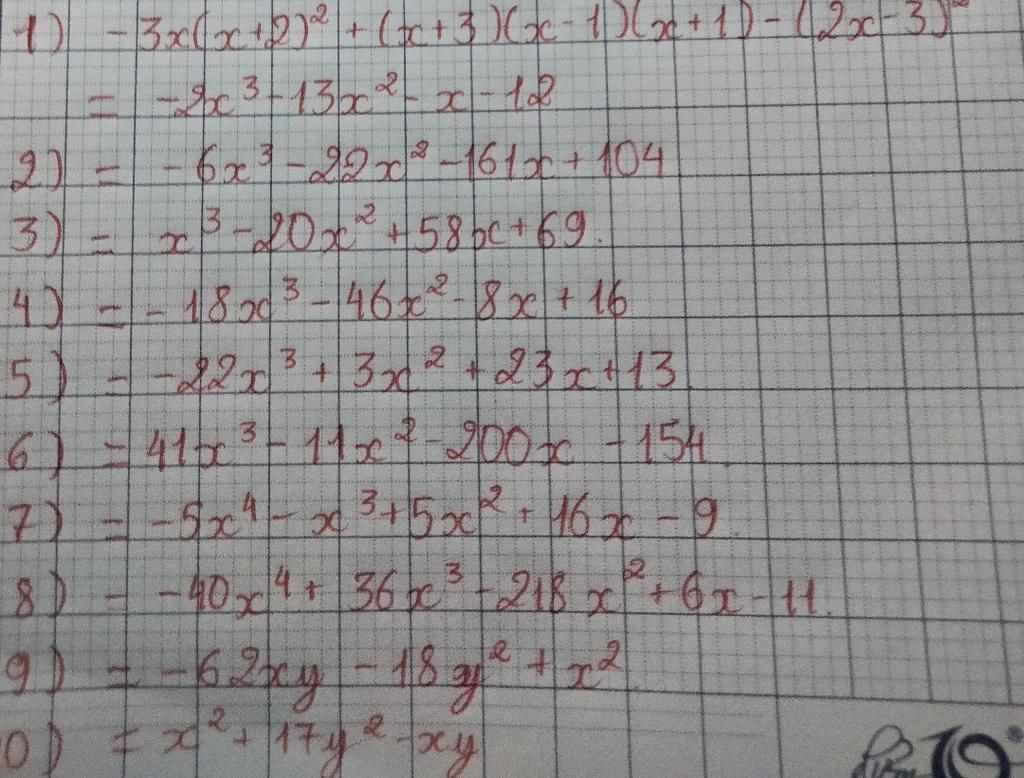 1) -3x(x+2)² + (x+3)(x-1)(x+1) - (2x-3)²
= -2x³ - 13x² - x - 12
2) = -6x³ - 22x² - 161x + 104
3) = x³ - 20x² + 58x + 69.
4) = -18x³ - 46x² - 8x + 16
5) = -22x³ + 3x² + 23x + 13
6) = 41x³ - 11x² - 200x - 154
7) = -5x⁴ - x³ + 5x² + 16x - 9
8) - -40x⁴ + 36x³ - 218x² + 6x - 11.
9) = -62xy - 18y² + x²
0) = x² + 17y² - xy